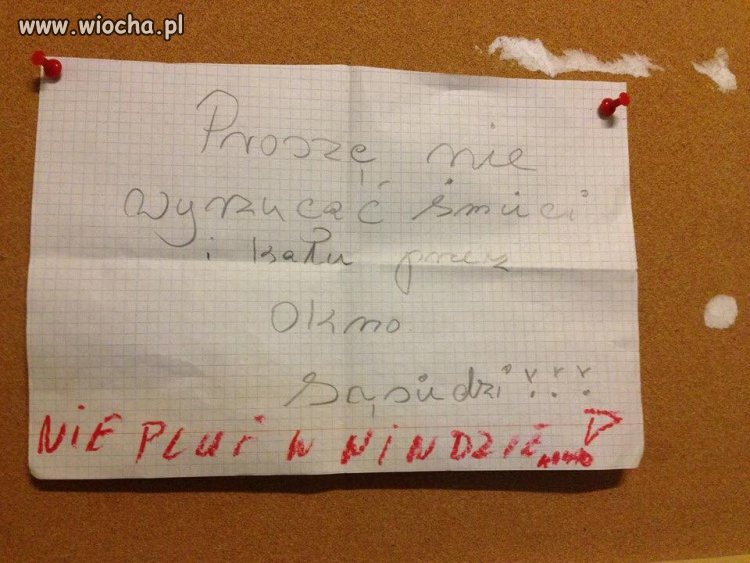 www.wiocha.pl
Proszę nie
wyrzucać śmieci
i kału przez
okno.
Sąsiedzi!!!
NIE PLUĆ W WINDZIE